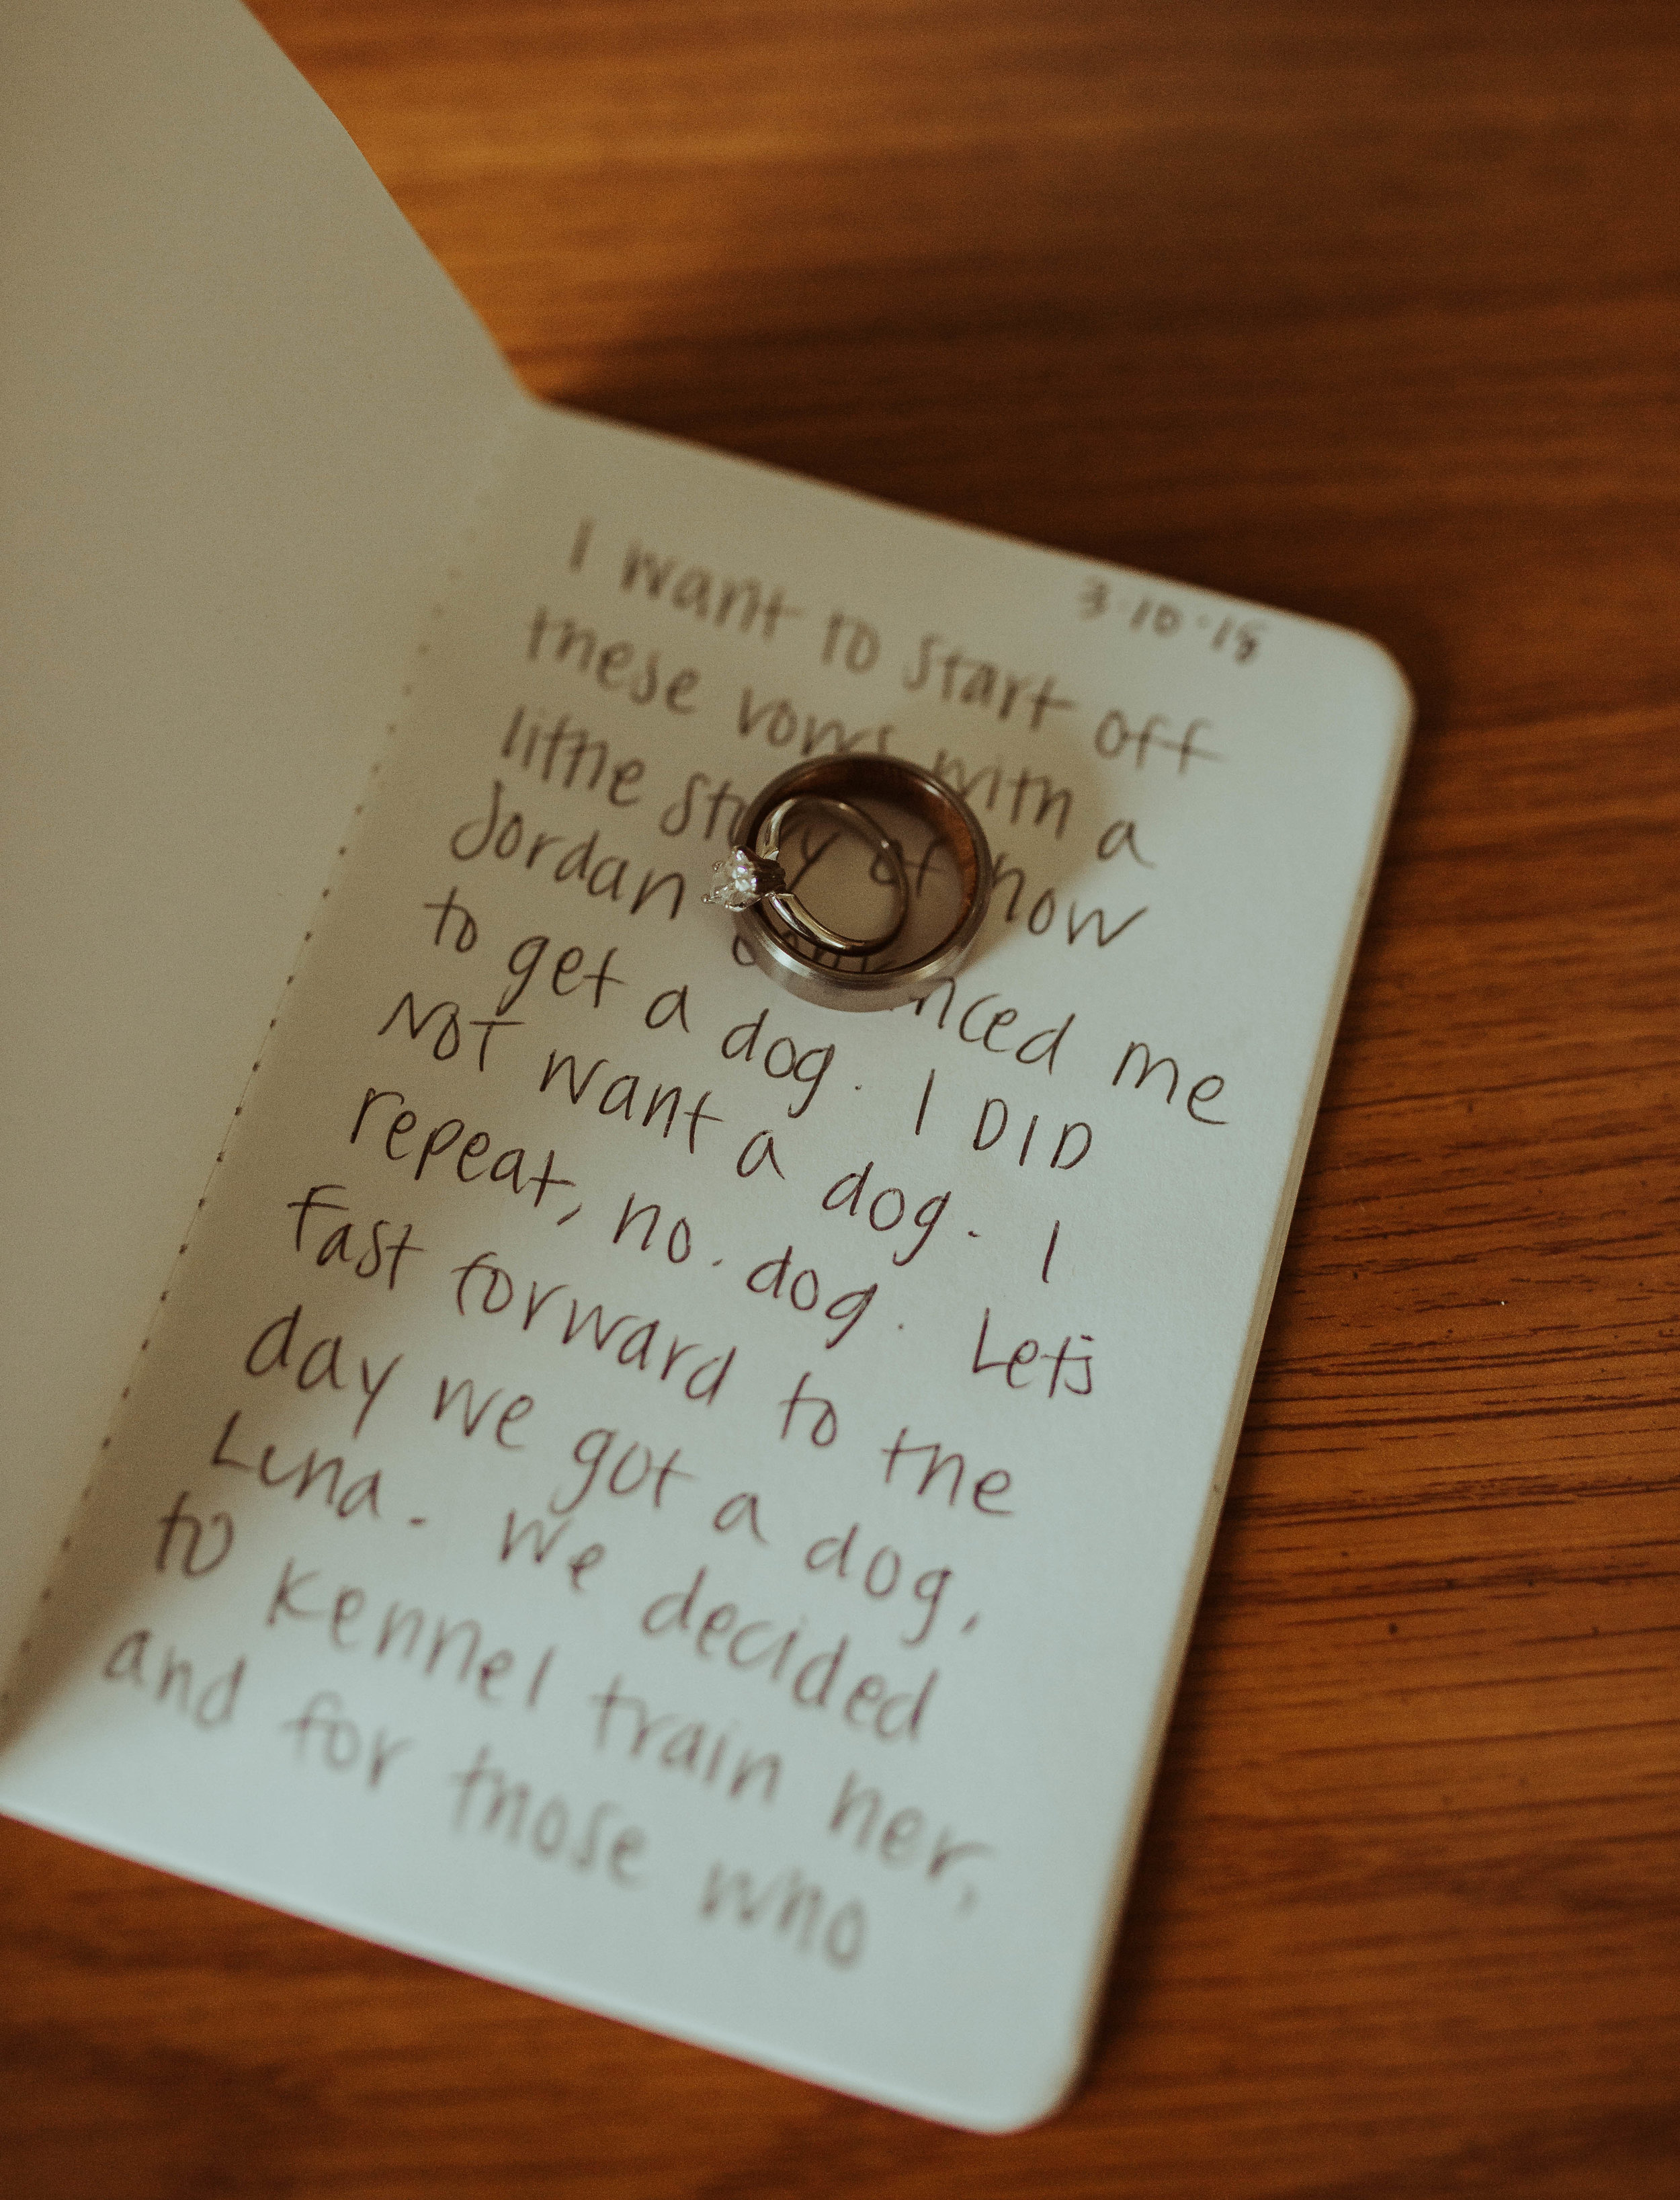 3·10·18
I want to start off
these vows with a
little story of how
Jordan convinced me
to get a dog. I DID
NOT want a dog. I
repeat, no. dog. Let's
fast forward to the
day we got a dog,
Luna. We decided
to kennel train her,
and for those who